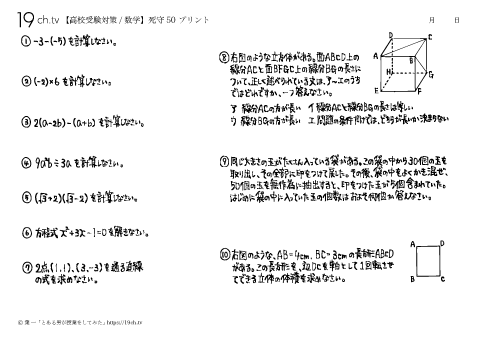 19 ch.tv 【高校受験対策/数学】死守50プリント
月 日
① -3-(-5) を計算しなさい。
② (-2)×6 を計算しなさい。
③ 2(a-2b)-(a+b) を計算しなさい。
④ 9a²b÷3a を計算しなさい。
⑤ (√3+2)(√3-2) を計算しなさい。
⑥ 方程式 x²+3x-1=0 を解きなさい。
⑦ 2点(1,1)、(3,-3)を通る直線
の式を求めなさい。
⑧ 右図のような立方体がある。面ABCD上の
線分ACと面BFGC上の線分BGの長さに
ついて、正しく述べられている文は、ア〜エのうち
ではどれですか、一つ答えなさい。
ア 線分ACの方が長い イ 線分ACと線分BGの長さは等しい
ウ 線分BGの方が長い エ 問題の条件だけでは、どちらが長いか決まらない
D C
A B
H G
E F
⑨ 同じ大きさの玉がたくさん入っている袋がある。この袋の中から30個の玉を
取り出し、その全部に印をつけて戻した。その後、袋の中をよくかき混ぜ、
50個の玉を無作為に抽出すると、印をつけた玉が6個含まれていた。
はじめに袋の中に入っていた玉の個数はおよそ何個か答えなさい。
⑩ 右図のような、AB=4cm、BC=3cmの長方形ABCD
がある。この長方形を、辺DCを軸として1回転させ
てできる立体の体積を求めなさい。
A D
B C
© 葉一「とある男が授業をしてみた」https://19ch.tv